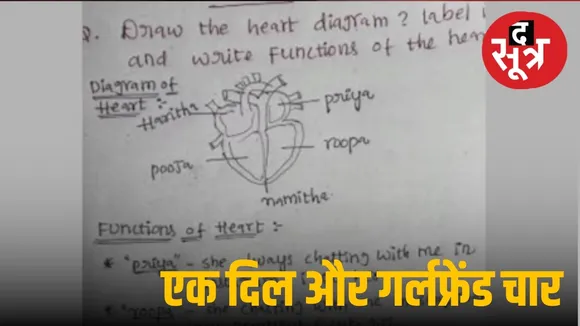 द सूत्र
Q. Draw the heart diagram? label
and write functions of the hear
Diagram of
Heart :-
Haritha
priya
roopa
pooja
namitha
Functions of Heart :-
* "priya" - she always chatting with me in
* "roopa" - she chatting with me
एक दिल और गर्लफ्रेंड चार